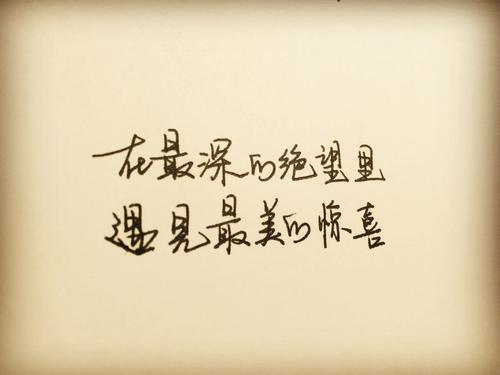 在最深的绝望里
遇見最美的惊喜